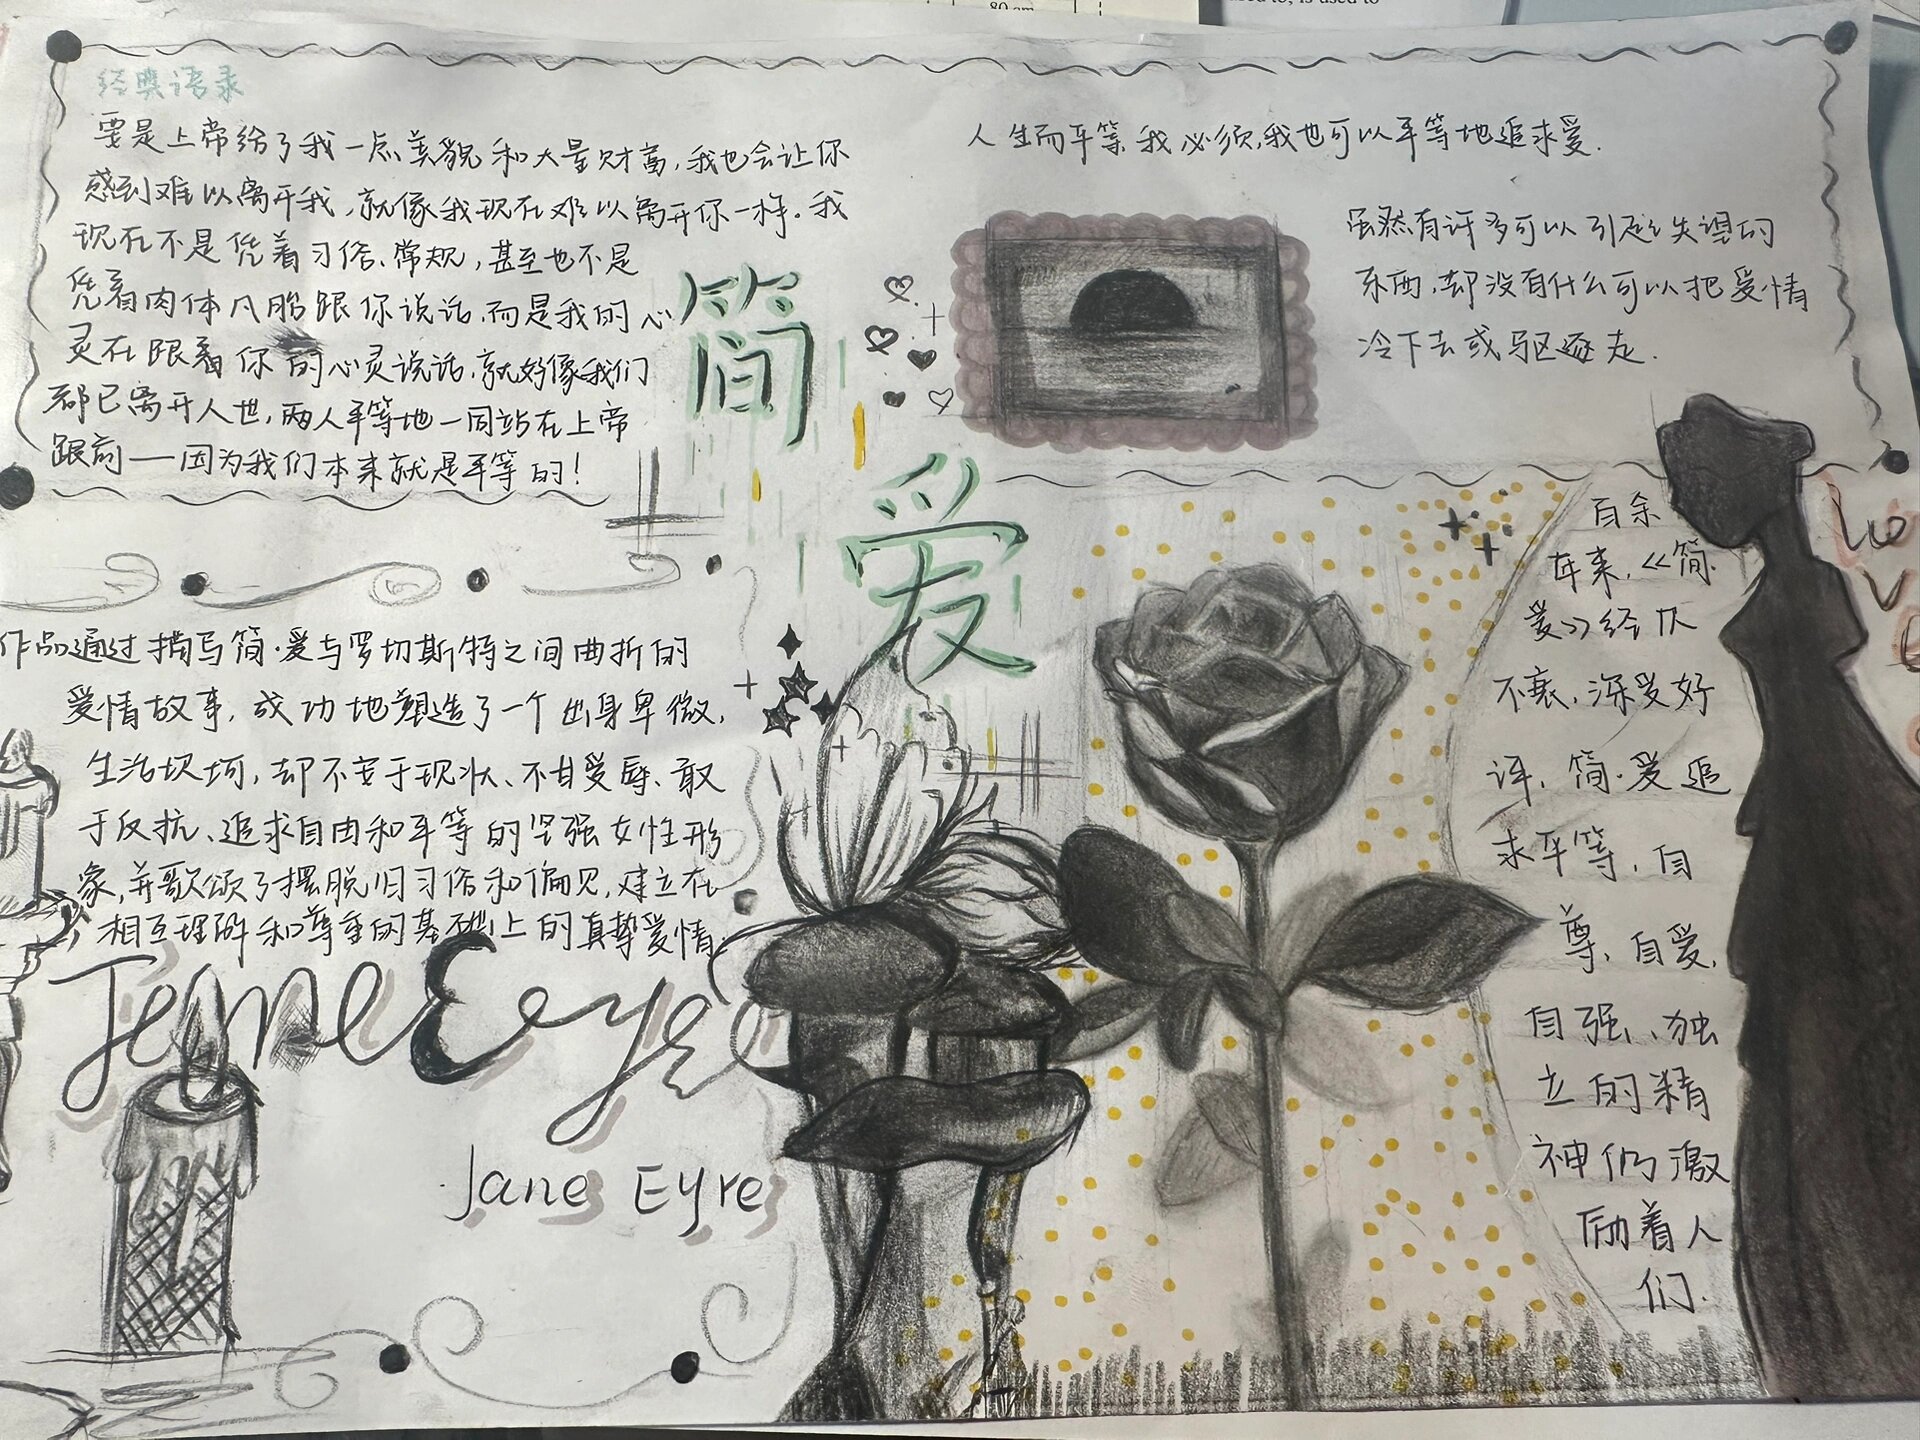 经典语录
要是上帝给了我一点美貌和大量财富,我也会让你
感到难以离开我,就像我现在难以离开你一样。我
现在不是凭着习俗、常规,甚至也不是
凭着肉体凡胎跟你说话,而是我的心
灵在跟着你的心灵说话,就好像我们
都已离开人世,两人平等地一同站在上帝
跟前——因为我们本来就是平等的!
人生而平等,我必须,我也可以平等地追求爱.
虽然有许多可以引起失望的
东西,却没有什么可以把爱情
冷下去或驱逐走.
简
爱
作品通过描写简·爱与罗切斯特之间曲折的
爱情故事,成功地塑造了一个出身卑微,
生活坎坷,却不安于现状、不甘受辱、敢
于反抗、追求自由和平等的坚强女性形
象,并歌颂了摆脱旧习俗和偏见,建立在
相互理解和尊重的基础上的真挚爱情
Jane Eyre
Jane Eyre
百余
年来,《简·
爱》经久
不衰,深受好
评,简·爱追
求平等,自
尊、自爱,
自强、独
立的精
神仍激
励着人
们.
80 cm